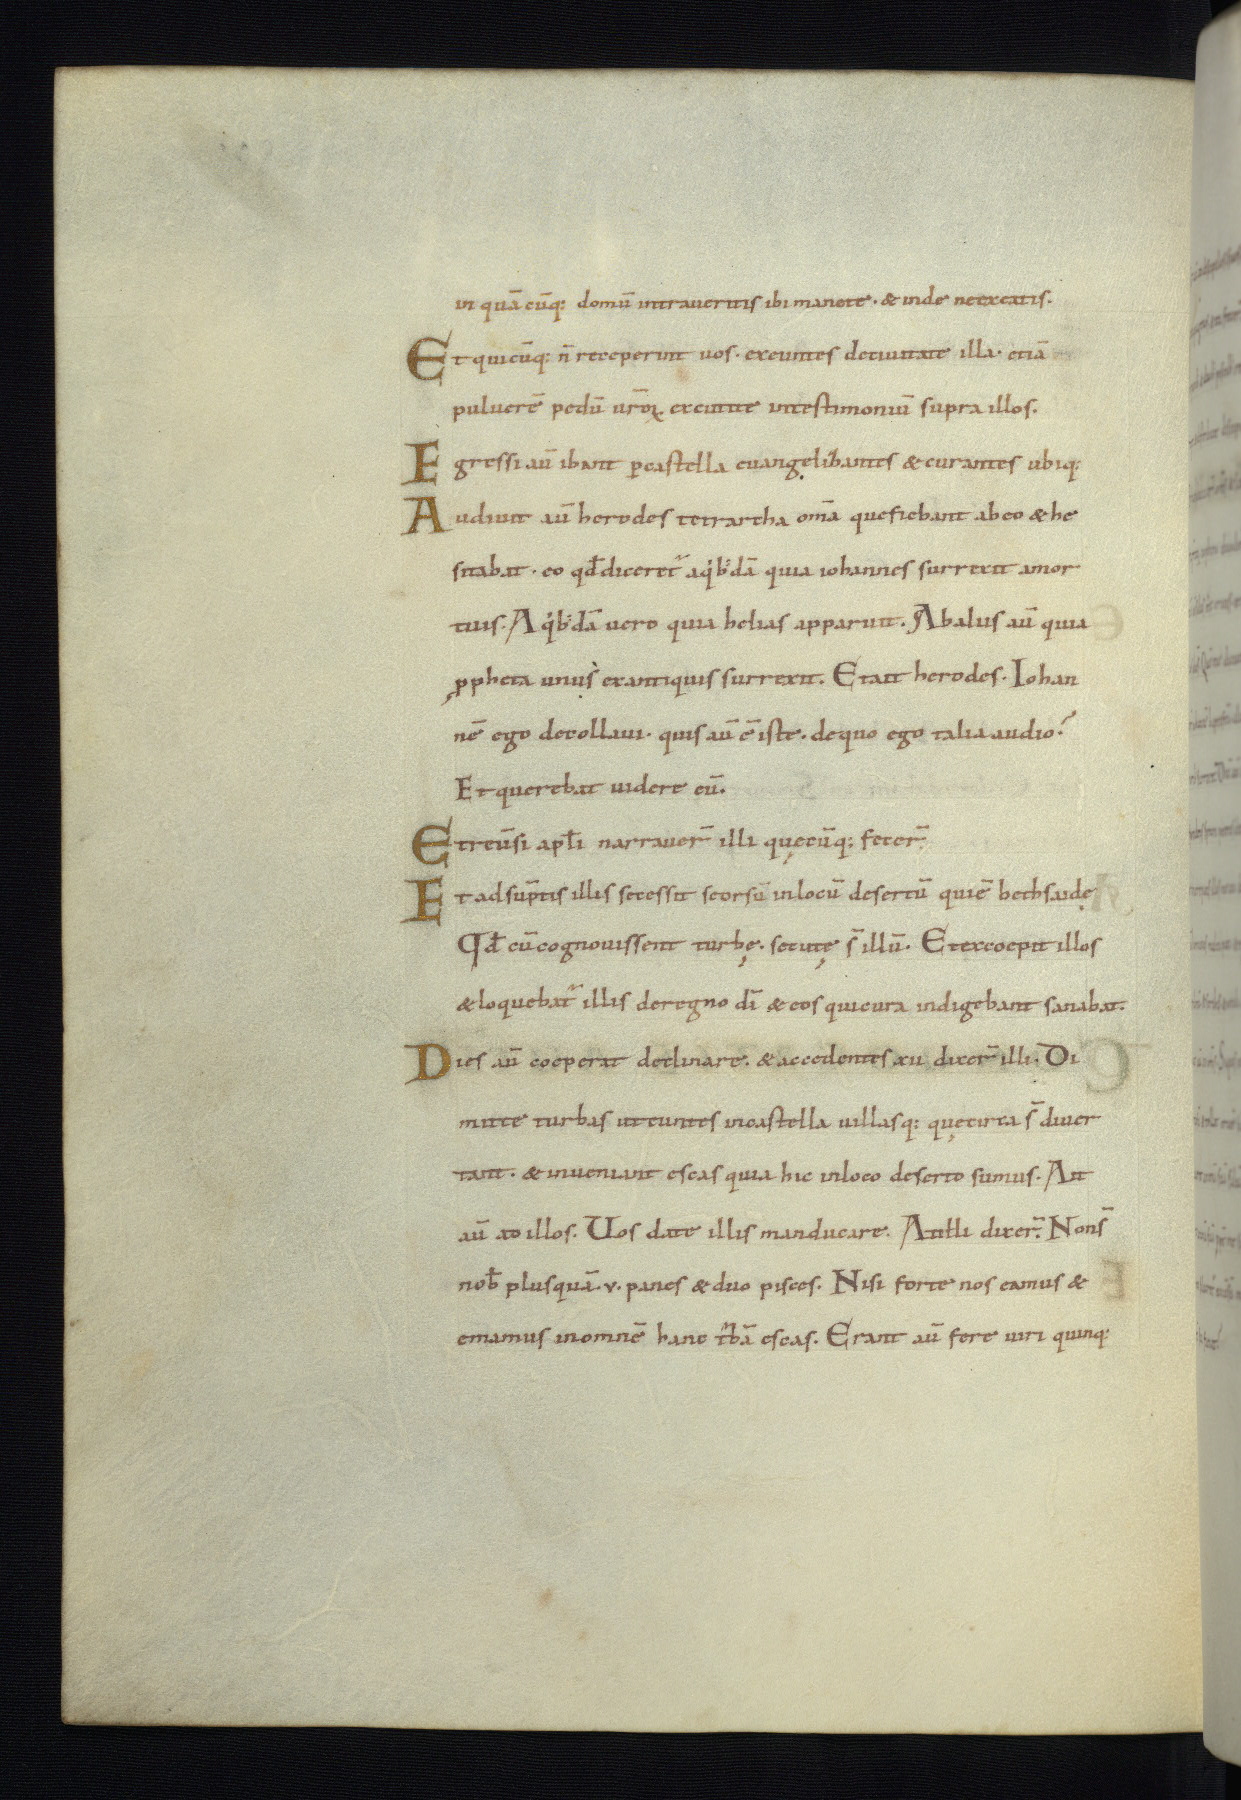 in quā cūq; domū intraueritis ibi manete · & inde neexeatis.
Et quicūq; n̄ receperint uos · exeuntes deciuitate illa · etiā
puluerē pedū ur̄oꝝ excutite intestimoniū supra illos.
Egressi aū ibant ꝑcastella euangelibantes & curantes ubiq;
Audiuit aū herodes tetrarcha om̄a quefiebant abeo & he
sitabat · eo qđ diceret᷑ aq̇bꝰdā quia iohannes surrexit amor
tuis. Aq̇bꝰdā uero quia helias apparuit. Abaliis aū quia
ꝓpheta unus exantiquis surrexit. Etait herodes. Iohan
nē ego decollaui · quis aū ē iste · dequo ego talia audio?
Et querebat uidere eū.
Etreūsi apłi narrauer̄ illi quęcūq; fecer̄
Et adsūptis illis secessit seorsū inlocū desertū quiē bethsaidę
Qđ cūcognouissent turbę · secutę s̄ illū. Etexcoepit illos
& loquebat᷑ illis deregno dī & eos quicura indigebant sanabat.
Dies aū coeperat declinare · & accedentes xii dixer̄ illi. Di
mitte turbas uteuntes incastella uillasq; quęcirca s̄ diuer
tant · & inueniant escas quia hic inloco deserto sumus. Ait
aū ad illos. Uos date illis manducare. Atilli dixer̄. Nons̄
nob̄ plusquā · v · panes & duo pisces. Nisi forte nos eamus &
emamus inomnē hanc t᷑bā escas. Erant aū fere uiri quinq;